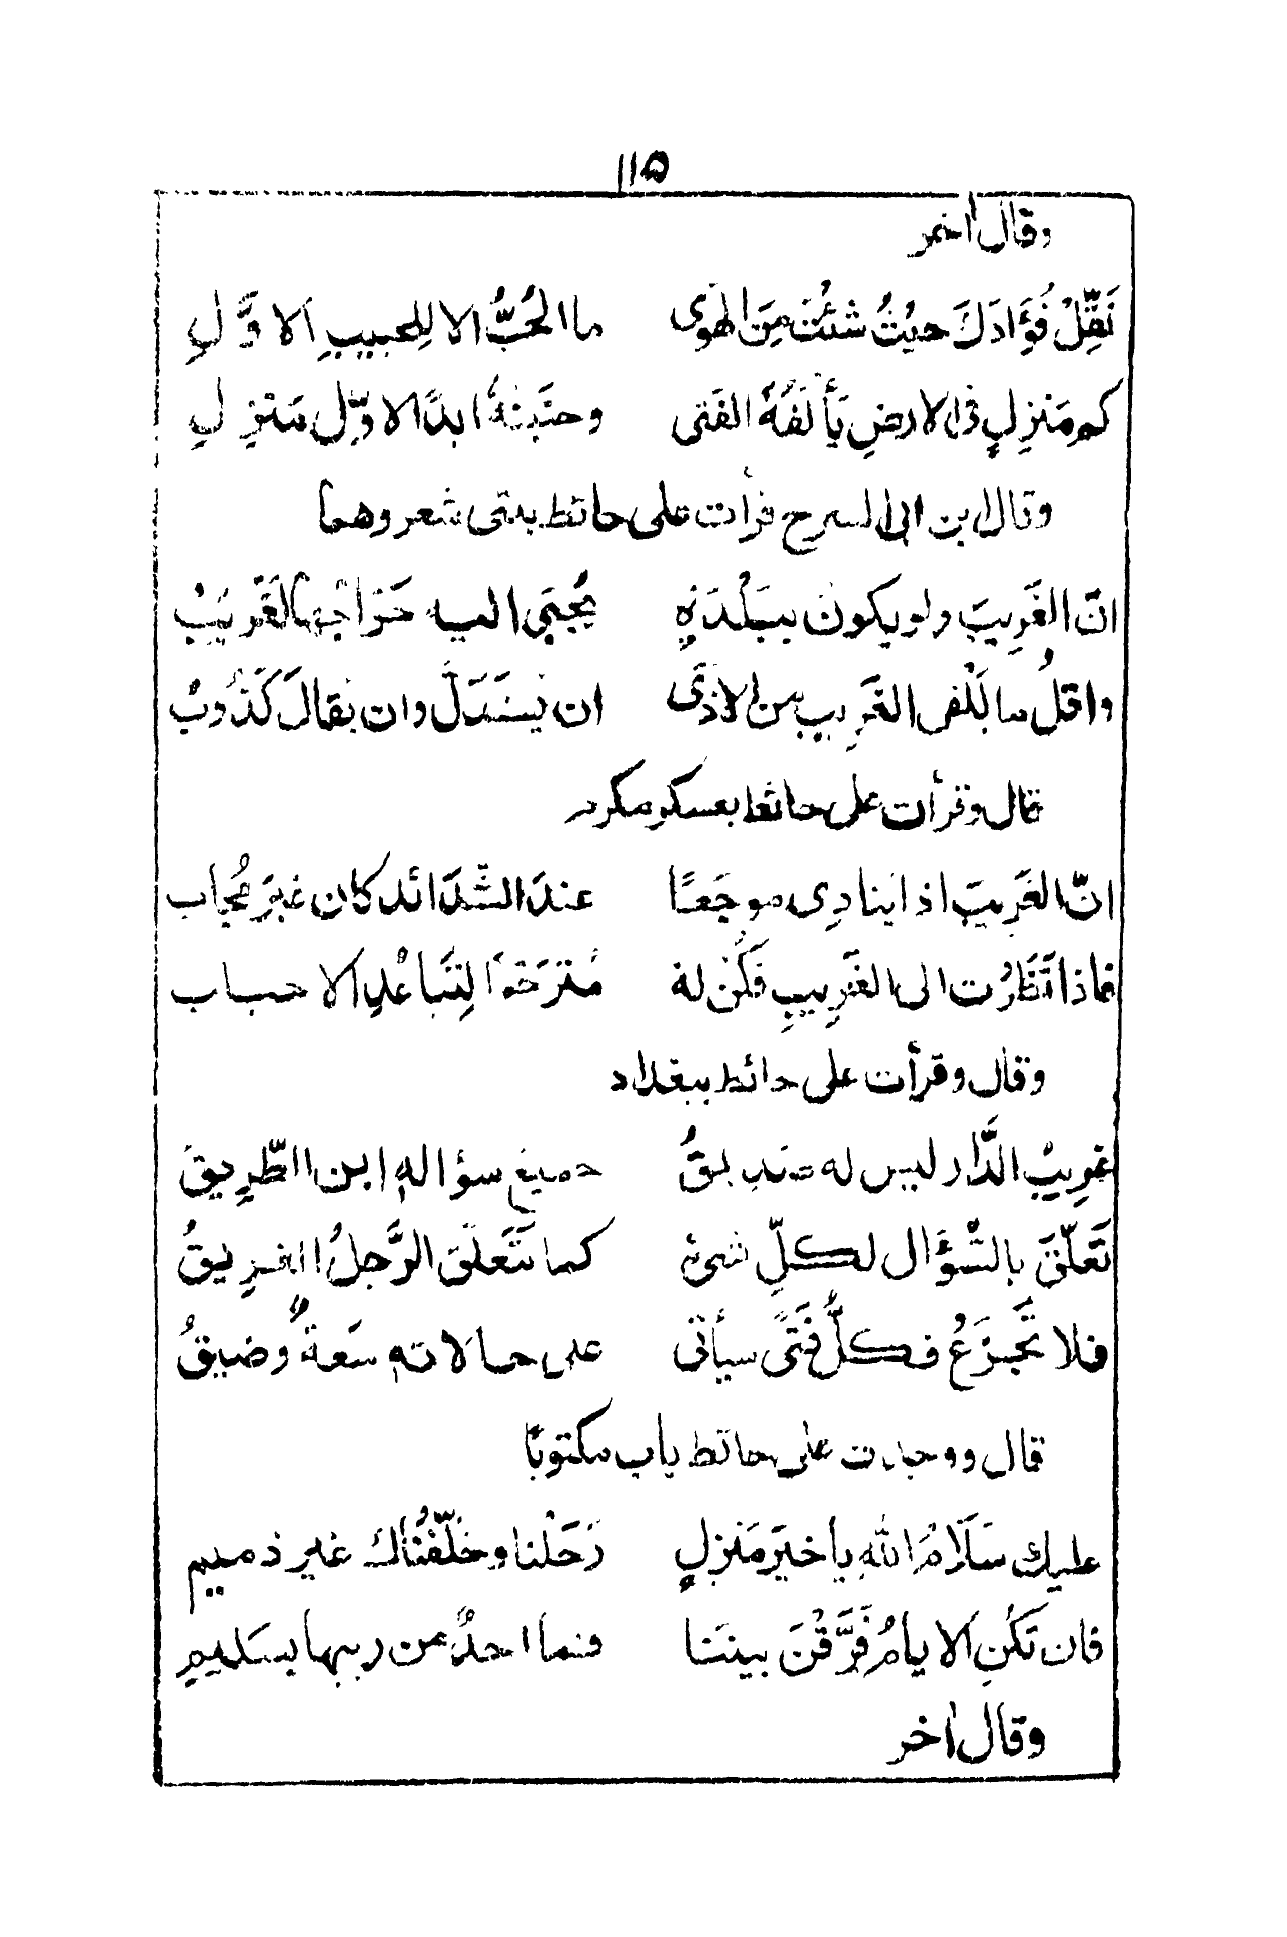 ١١٥
وقال اخر
نَقِّلْ فُؤَادَكَ حيْثُ شئتَ مِنَ الهوٰى ما الحُبُّ الا لِلحبيبِ الاوَّلِ
كم مَنزِلٍ فى الارضِ يَألَفُهُ الفَتى وحنَينُهُ ابدًا لاوّلِ مَنزِلِ
وقال ابن ابى السرح قرأت على حائط بيتى شعر وهما
انّ الغَرِيبَ ولو يكون ببَلْدَةٍ يُجبَى اليه خَرَاجُها لغَرِيبُ
واقلُّ ما يَلْقى الغَرِيبُ من الاذَى ان يُستَذَلَّ وان يُقالَ كَذُوبُ
قال وقرأت على حائط بعسكر مكرم
انّ الغَرِيبَ اذا ينادِى موجَعًا عندَ الشَّدَائد كان غيرَ مُجاب
فاذا نَظَرْت الى الغَرِيبِ فَكُنْ له مُترَحّمًا لِتَباعُدِ الاحباب
وقال وقرأت على حائط ببغداد
غريبُ الدَّار ليس له صديقُ جميعُ سؤالهِ ابن الطّريقُ
تَعلّقَ بالسُّؤَال لكلِّ شىءٍ كما يَتَعلّقَ الرَّجلُ الغريقُ
فلا تَجزَعْ فكلُّ فَتًى سيأتى على حالاته سَعةٌ وضيقُ
قال ووجدت على حائط باب مكتوبًا
عليك سَلَامُ اللهِ يا خيرَ مَنزلٍ رَحَلْنا وخَلّفْنَاك غير ذميم
فان تكُنِ الايامُ فَرَّقْنَ بيننا فما احدٌ من ريبها بسَليمِ
وقال اخر